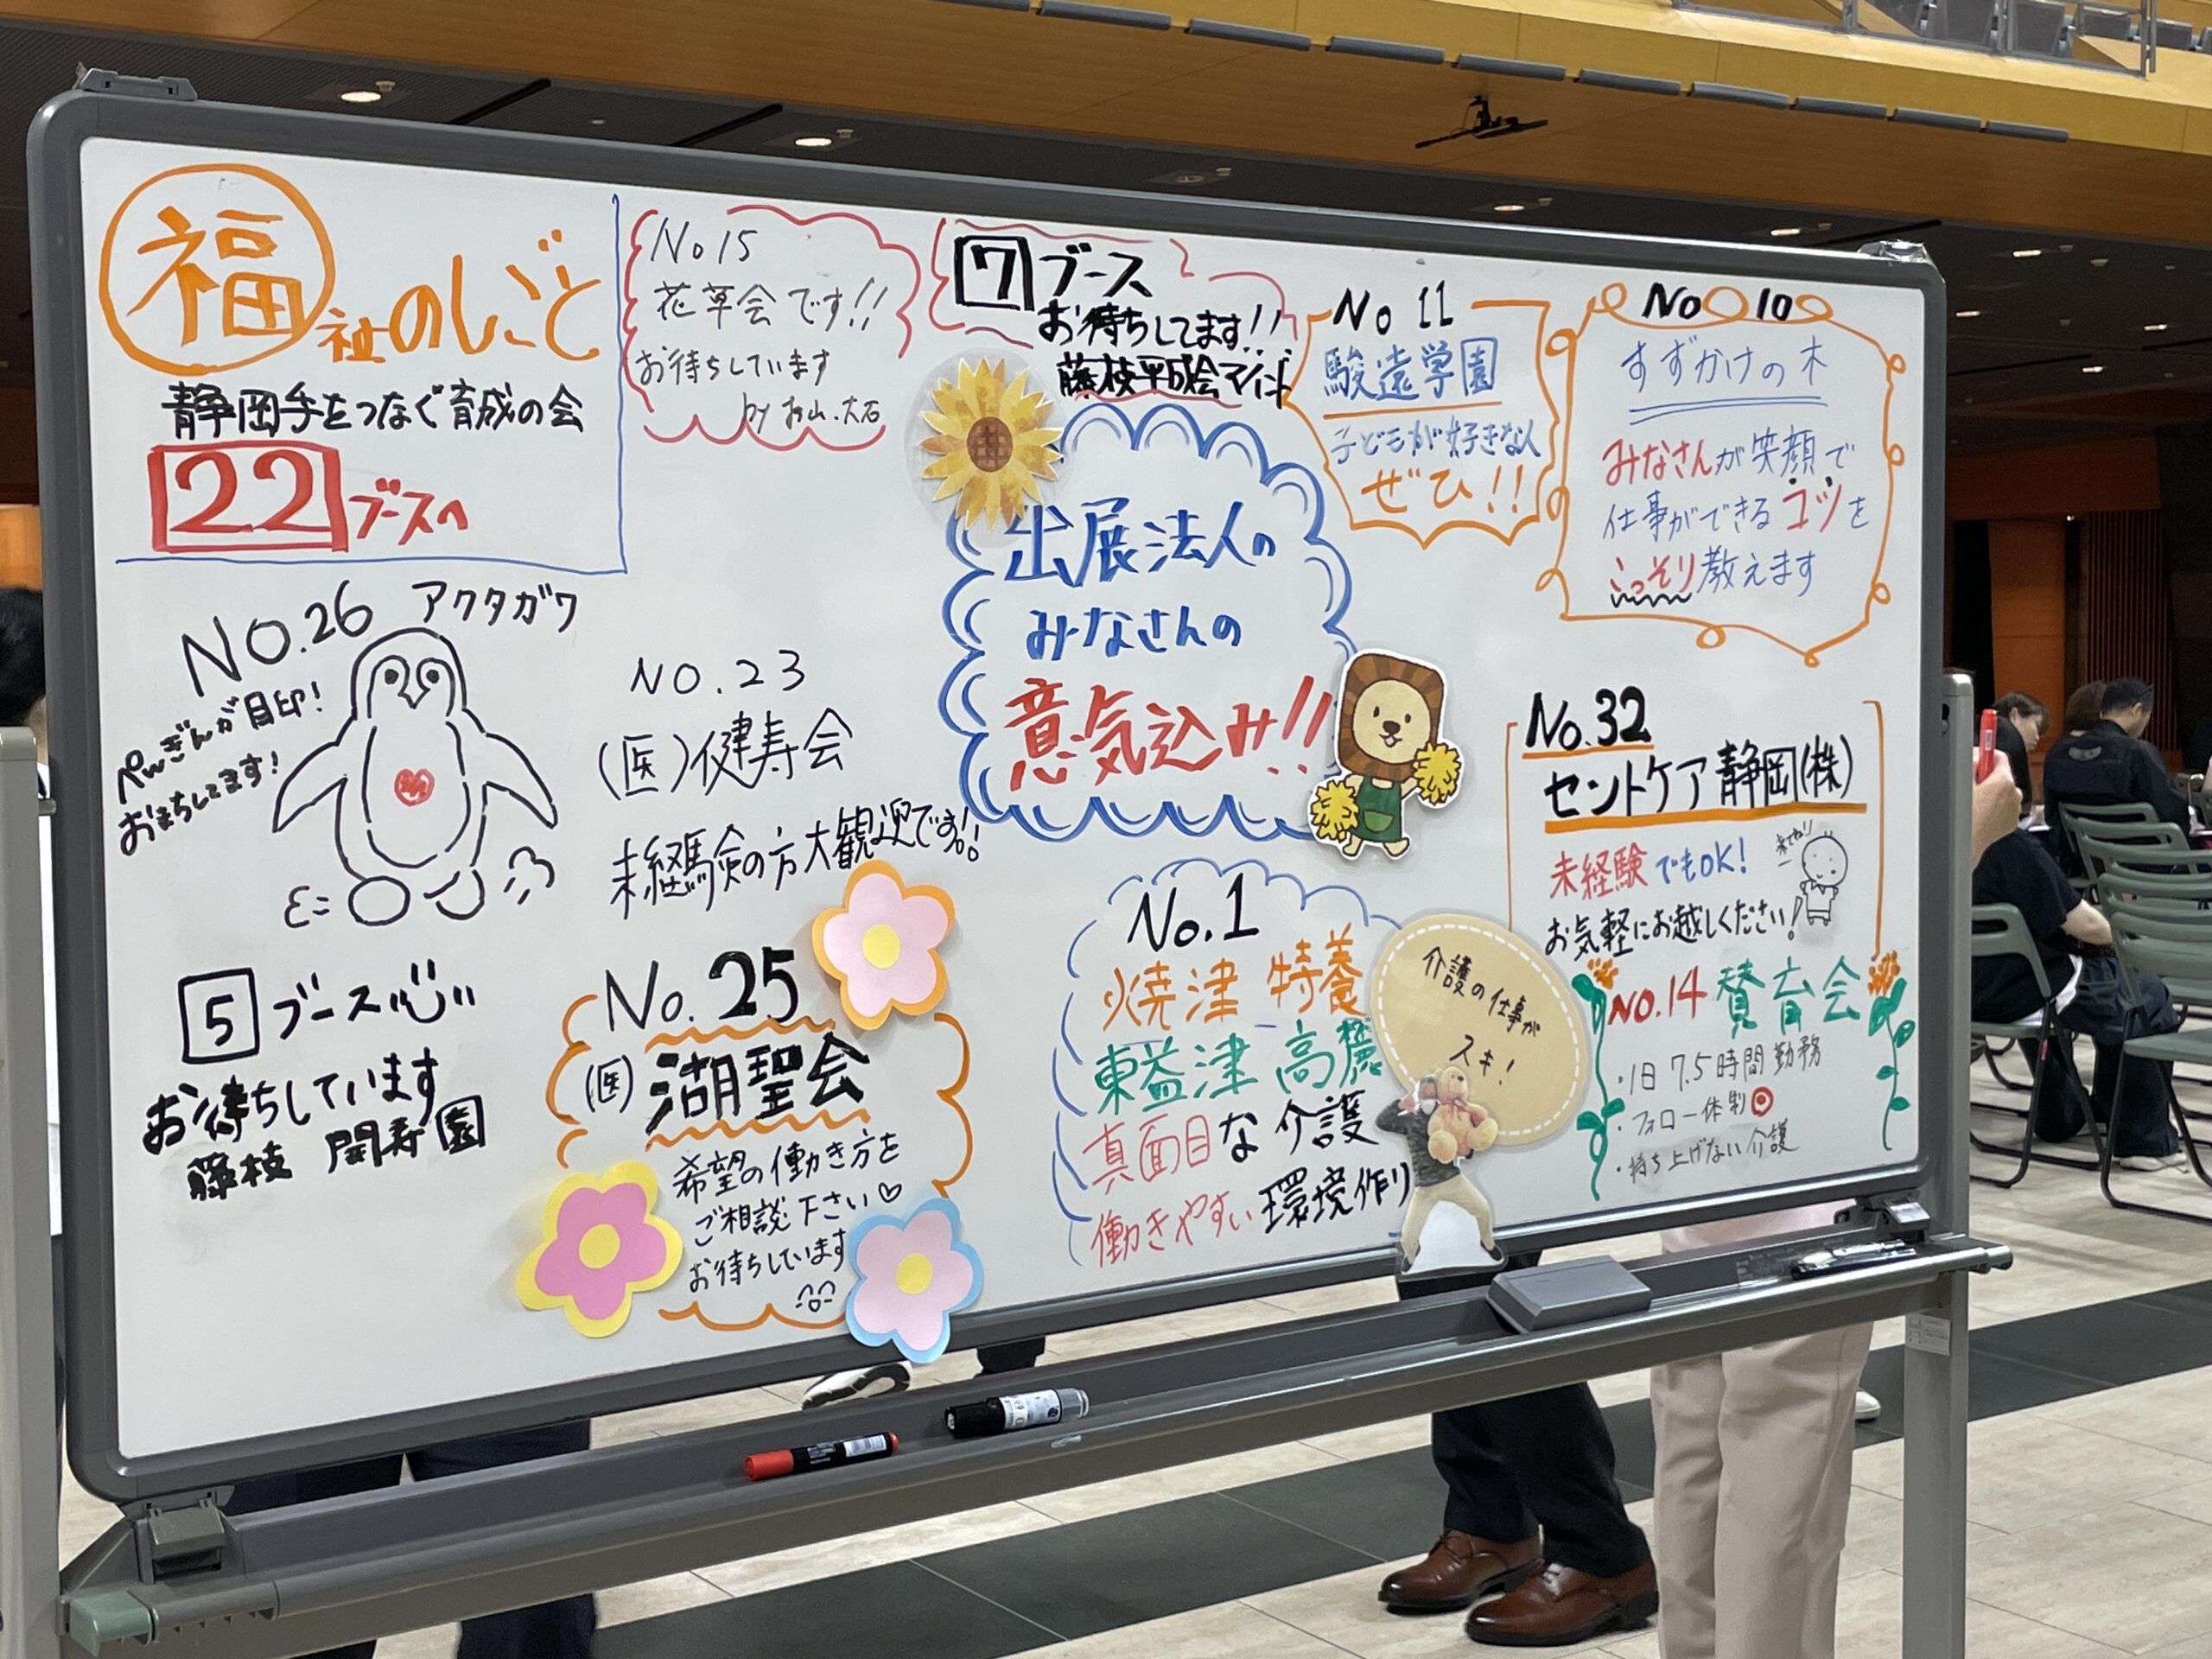 福祉のしごと
静岡手をつなぐ育成の会
22ブースへ
No 15
花草会です!!
お待ちしています
by 杉山.大石
7 ブース
お待ちしてます!!
藤枝平成会マインド
No 11
駿遠学園
子どもが好きな人
ぜひ!!
No 10
すずかけの木
みなさんが笑顔で
仕事ができるコツを
こっそり教えます
出展法人の
みなさんの
意気込み!!
NO.26 アクタガワ
ぺんぎんが目印!
おまちしてます!
NO.23
(医)健寿会
未経験の方大観迎です!!
No.32
セントケア静岡(株)
未経験でもOK!
来てね!!
お気軽にお越しください!
5 ブース
お待ちしています
藤枝 開寿園
No. 25
(医) 湖聖会
希望の働き方を
ご相談下さい♡
お待ちしています
No.1
焼津 特養
東益津 高麓
真面目な介護
働きやすい環境作り
介護の仕事が
スキ!
NO.14 賛育会
・1日 7.5時間勤務
・フォロー体制◎
・持ち上げない介護